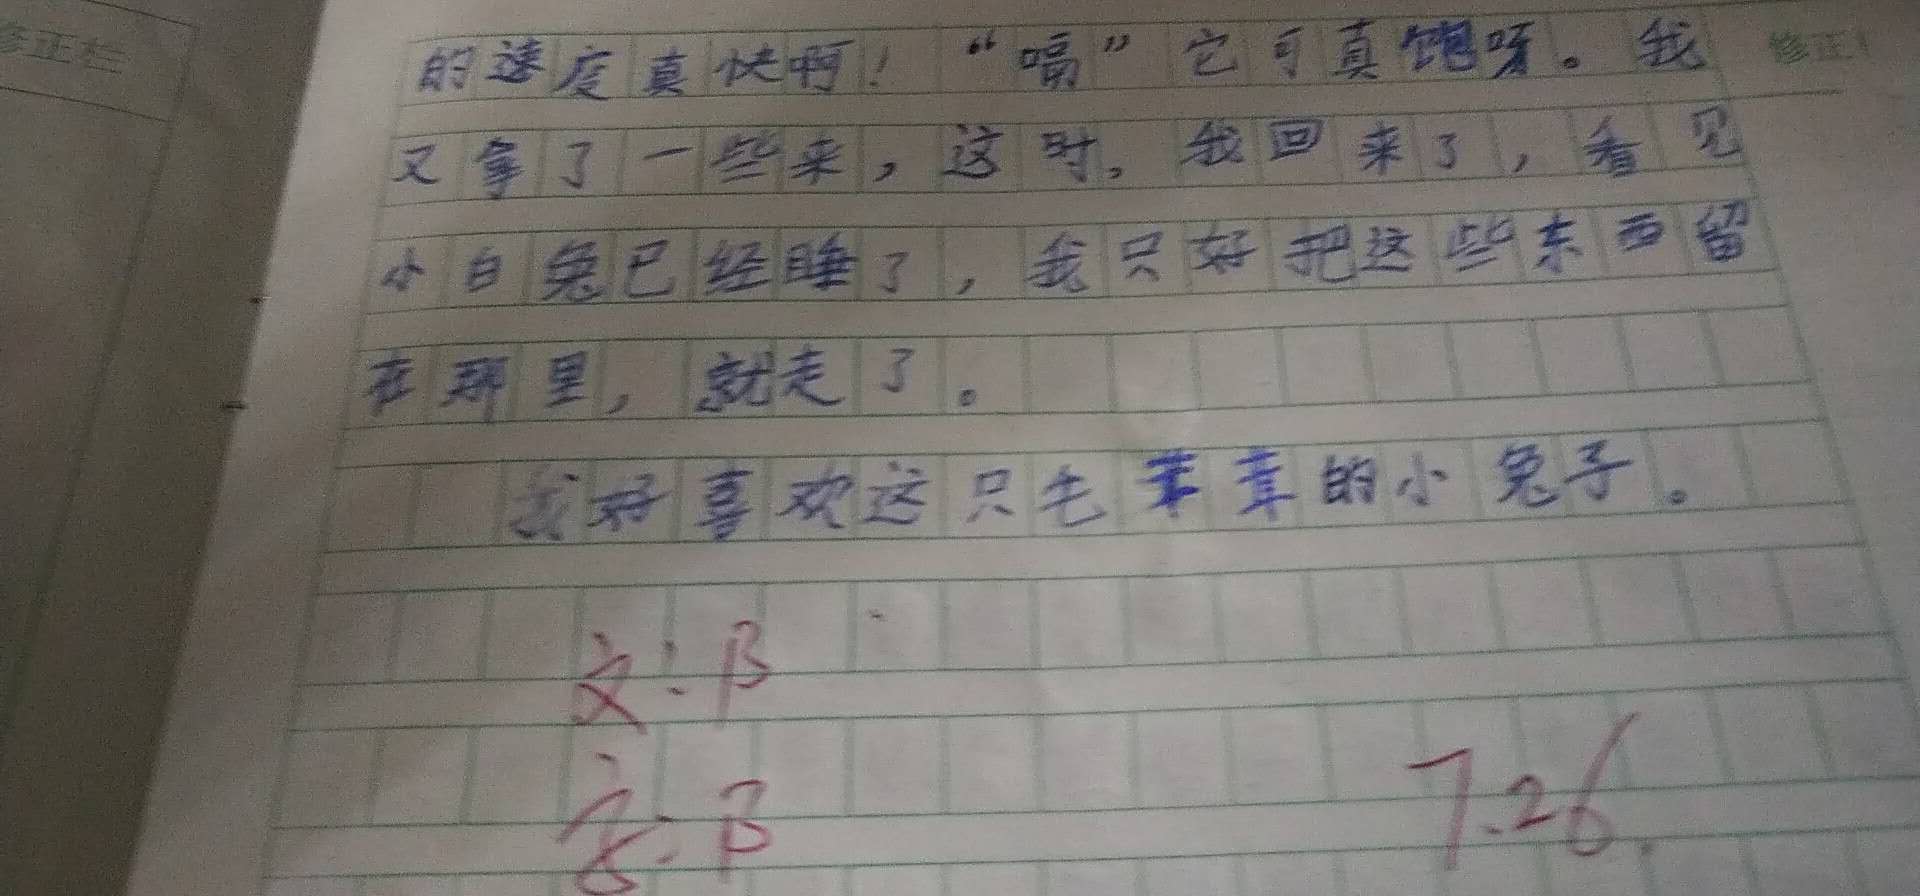 修正栏
的速度真快啊！“嗝”它可真饱呀。我
修正
又拿了一些来，这时，我回来了，看见
小白兔已经睡了，我只好把这些东西留
在那里，就走了。
我好喜欢这只毛茸茸的小兔子。
文：B
字：B
7.26